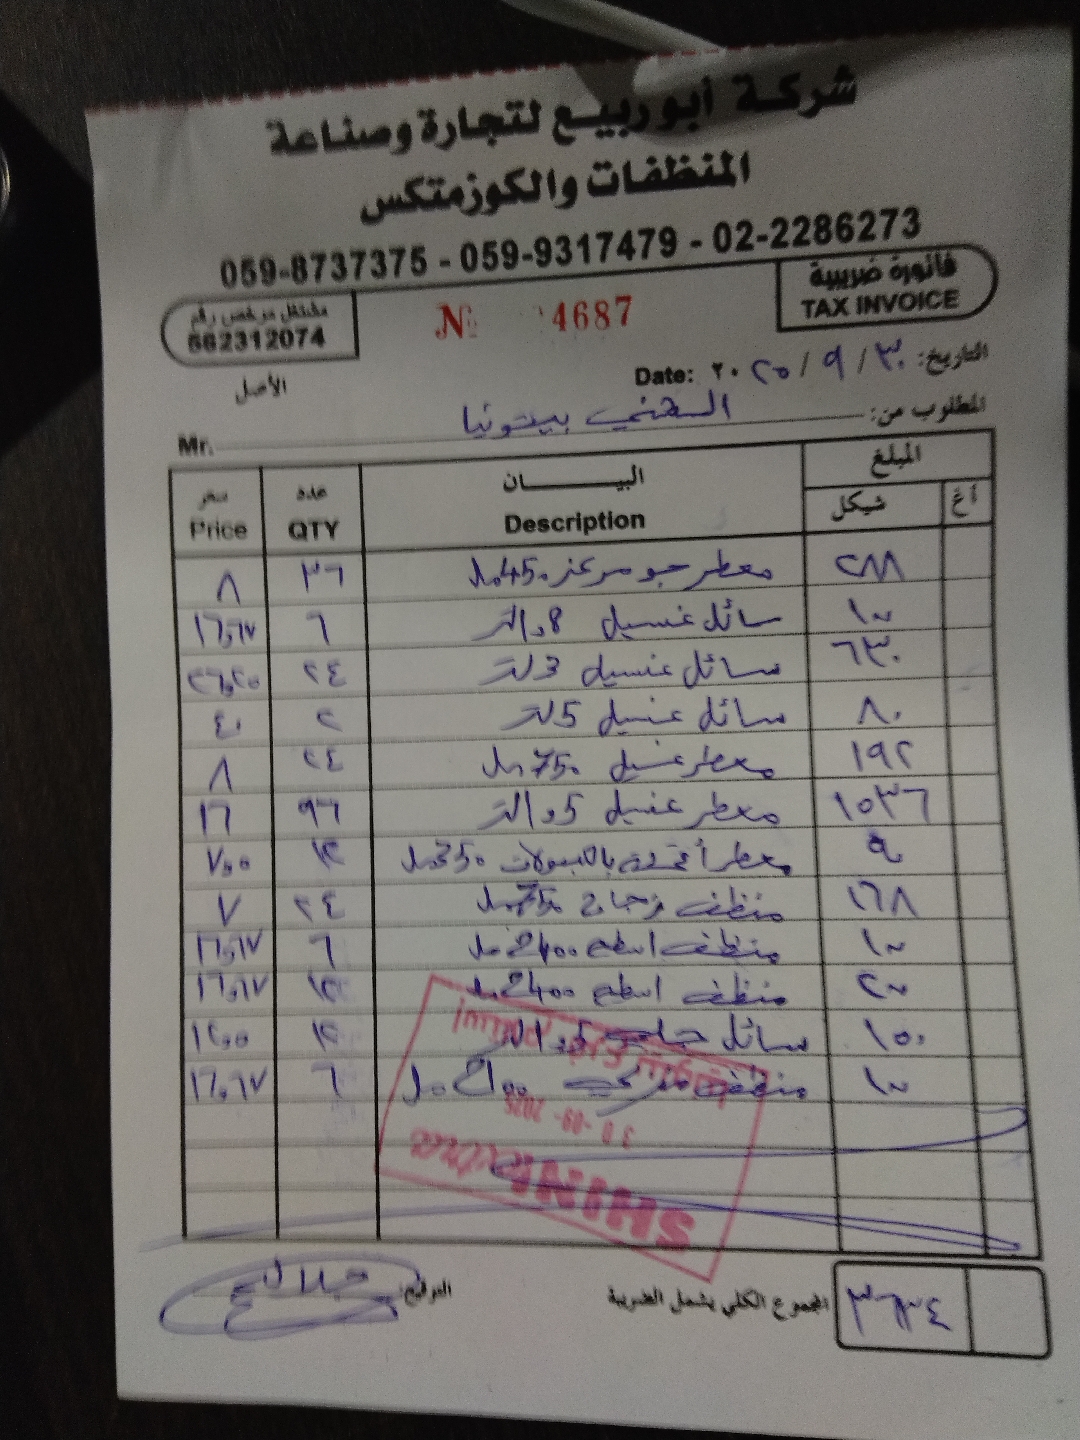 شركة أبوربيع لتجارة وصناعة
المنظفات والكوزمتكس
059-8737375 - 059-9317479 - 02-2286273
فاتورة ضريبية
TAX INVOICE
№ 4687
مشتغل مرخص رقم
562312074
الأصل
التاريخ: ٣٠ / ٩ / ٢٠٢٥ Date:
المطلوب من: السهني بيتونيا Mr.
المبلغ البيـــــــان عدد سعر
أغ شيكل Description QTY Price
٢٨٨ معطر جو مركز 450 مل ٣٦ ٨
١٠٠ سائل غسيل 1,8 لتر ٦ ١٦,٦٧
٦٣٠ سائل غسيل 3 لتر ٢٤ ٢٦,٢٥
٨٠ سائل غسيل 5 لتر ٢ ٤٠
١٩٢ معطر غسيل 750 مل ٢٤ ٨
١٥٣٦ معطر غسيل 1,5 لتر ٩٦ ١٦
٩٠ معطر بالكبسولات 350 مل ١٢ ٧,٥٠
١٦٨ منظف زجاج 750 مل ٢٤ ٧
١٠٠ منظف اسطح 2400 مل ٦ ١٦,٦٧
٢٠٠ منظف اسطح 2400 مل ١٢ ١٦,٦٧
١٥٠ سائل لتر ١٢ ١٢,٥٠
١٠٠ منظف مل ٦ ١٦,٦٧
30 -09- 2025
SHINI extra
المجموع الكلي يشمل الضريبة ٣٦٣٤
التوقيع: